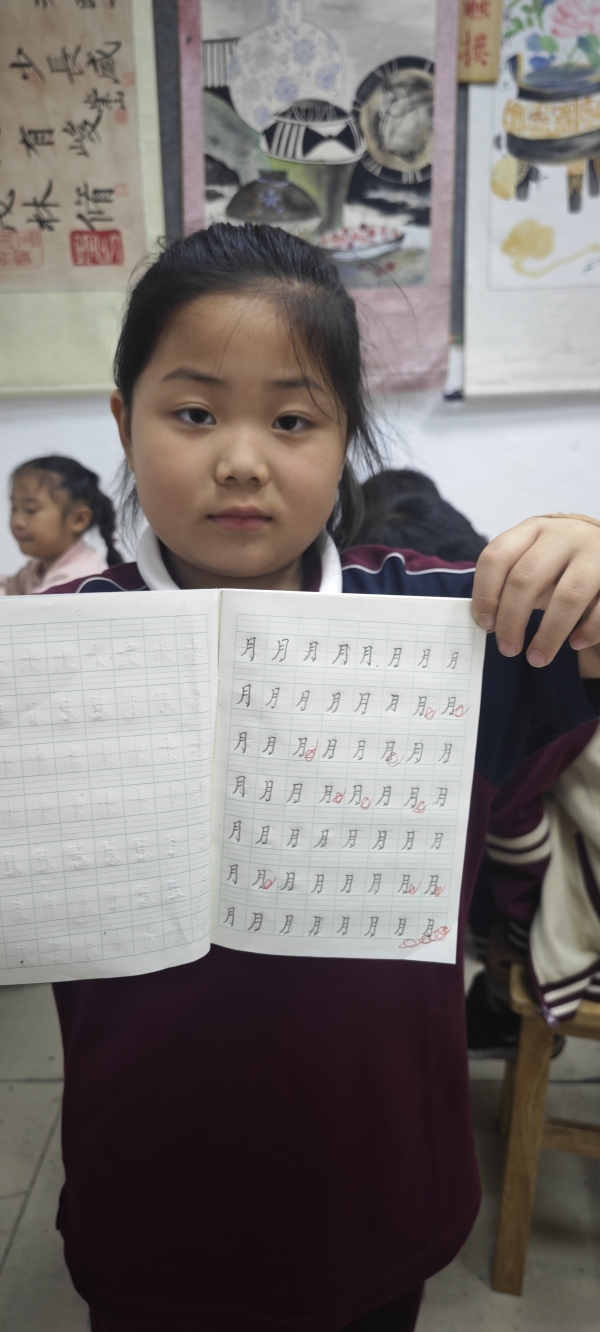 少長咸
有崇峻
林脩
月月月月月月月月
月月月月月月月月
月月月月月月月月
月月月月月月月月
月月月月月月月月
月月月月月月月月
月月月月月月月月